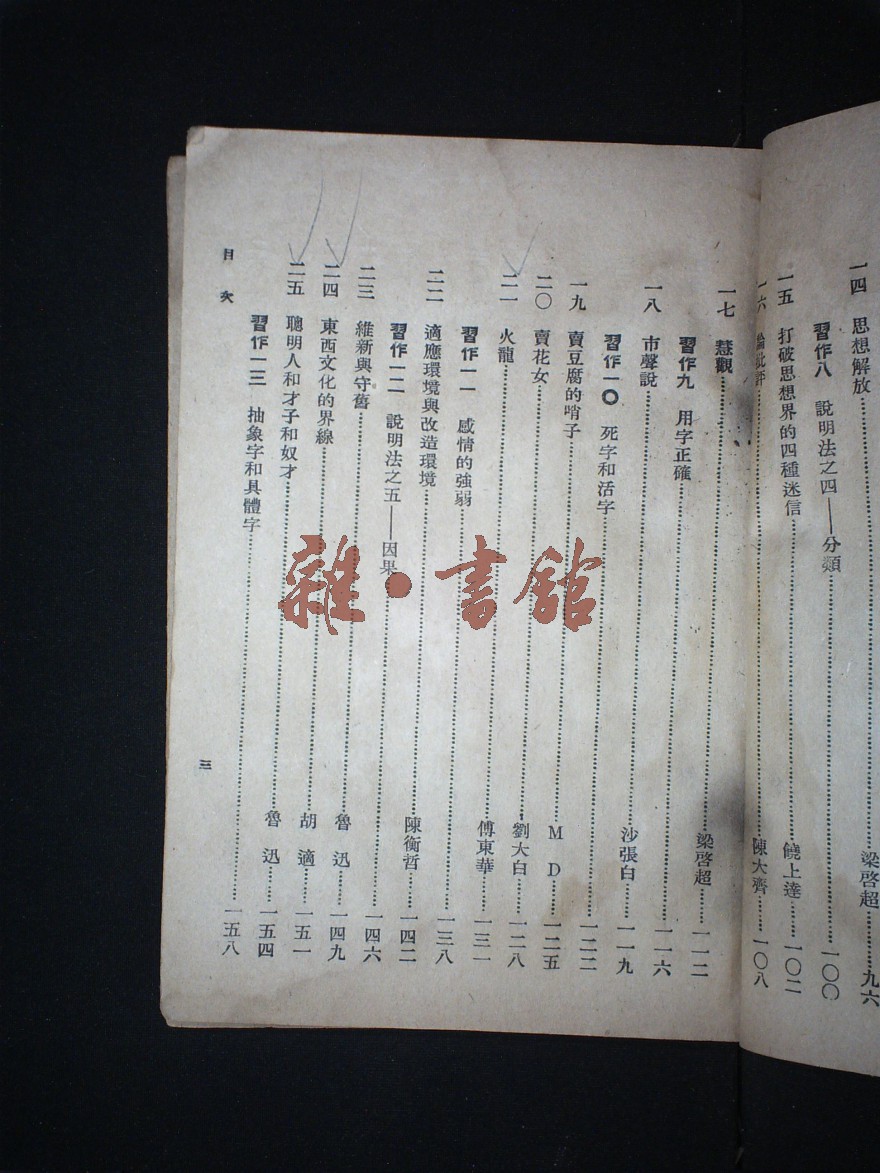 一四 思想解放……梁啓超……九六
習作八 說明法之四——分類……一〇〇
一五 打破思想界的四種迷信……饒上達……一〇二
一六 論批評……陳大齊……一〇八
一七 慧觀……梁啓超……一一二
習作九 用字正確……一一六
一八 市聲說……沙張白……一一九
習作一〇 死字和活字……一二二
一九 賣豆腐的哨子……M D……一二五
二〇 賣花女……劉大白……一二八
二一 火龍……傅東華……一三一
習作一一 感情的強弱……一三八
二二 適應環境與改造環境……陳衡哲……一四二
習作一二 說明法之五——因果……一四六
二三 維新與守舊……魯迅……一四九
二四 東西文化的界線……胡適……一五一
二五 聰明人和才子和奴才……魯迅……一五四
習作一三 抽象字和具體字……一五八
目次
三
雜·書館